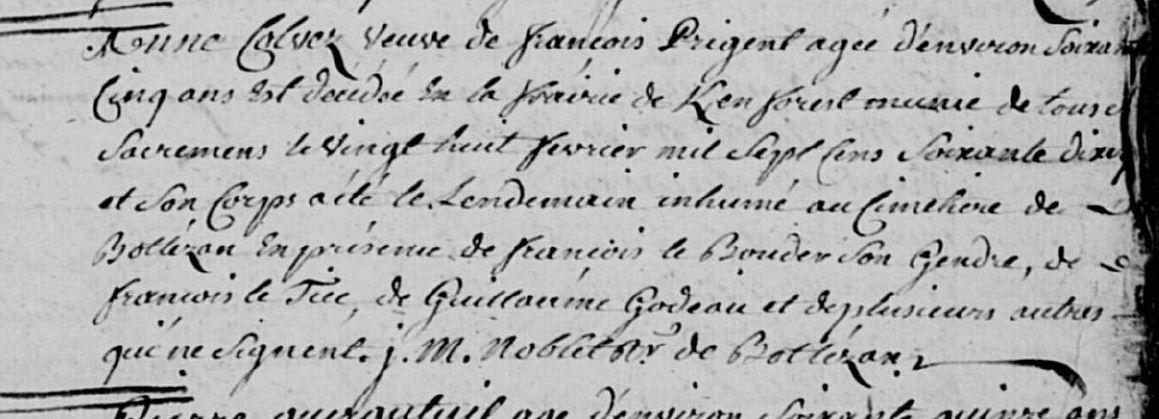 Anne Calvez veuve de françois Prigent agée d'environ Soixante
Cinq ans Est décédée En la frairie de munie de tous
Sacremens le vingt huit fevrier mil Sept Cens Soixante dix
et Son Corps a été le Lendemain inhumé au Cimetiere de
Botlézan En présence de françois le Bouder Son Gendre, de
françois le Tiec, de Guillaume Godeau et de plusieurs autres
qui ne Signent. j. M. Noblet de Botlézan
Pierre agé d'environ Soixante quinze ans